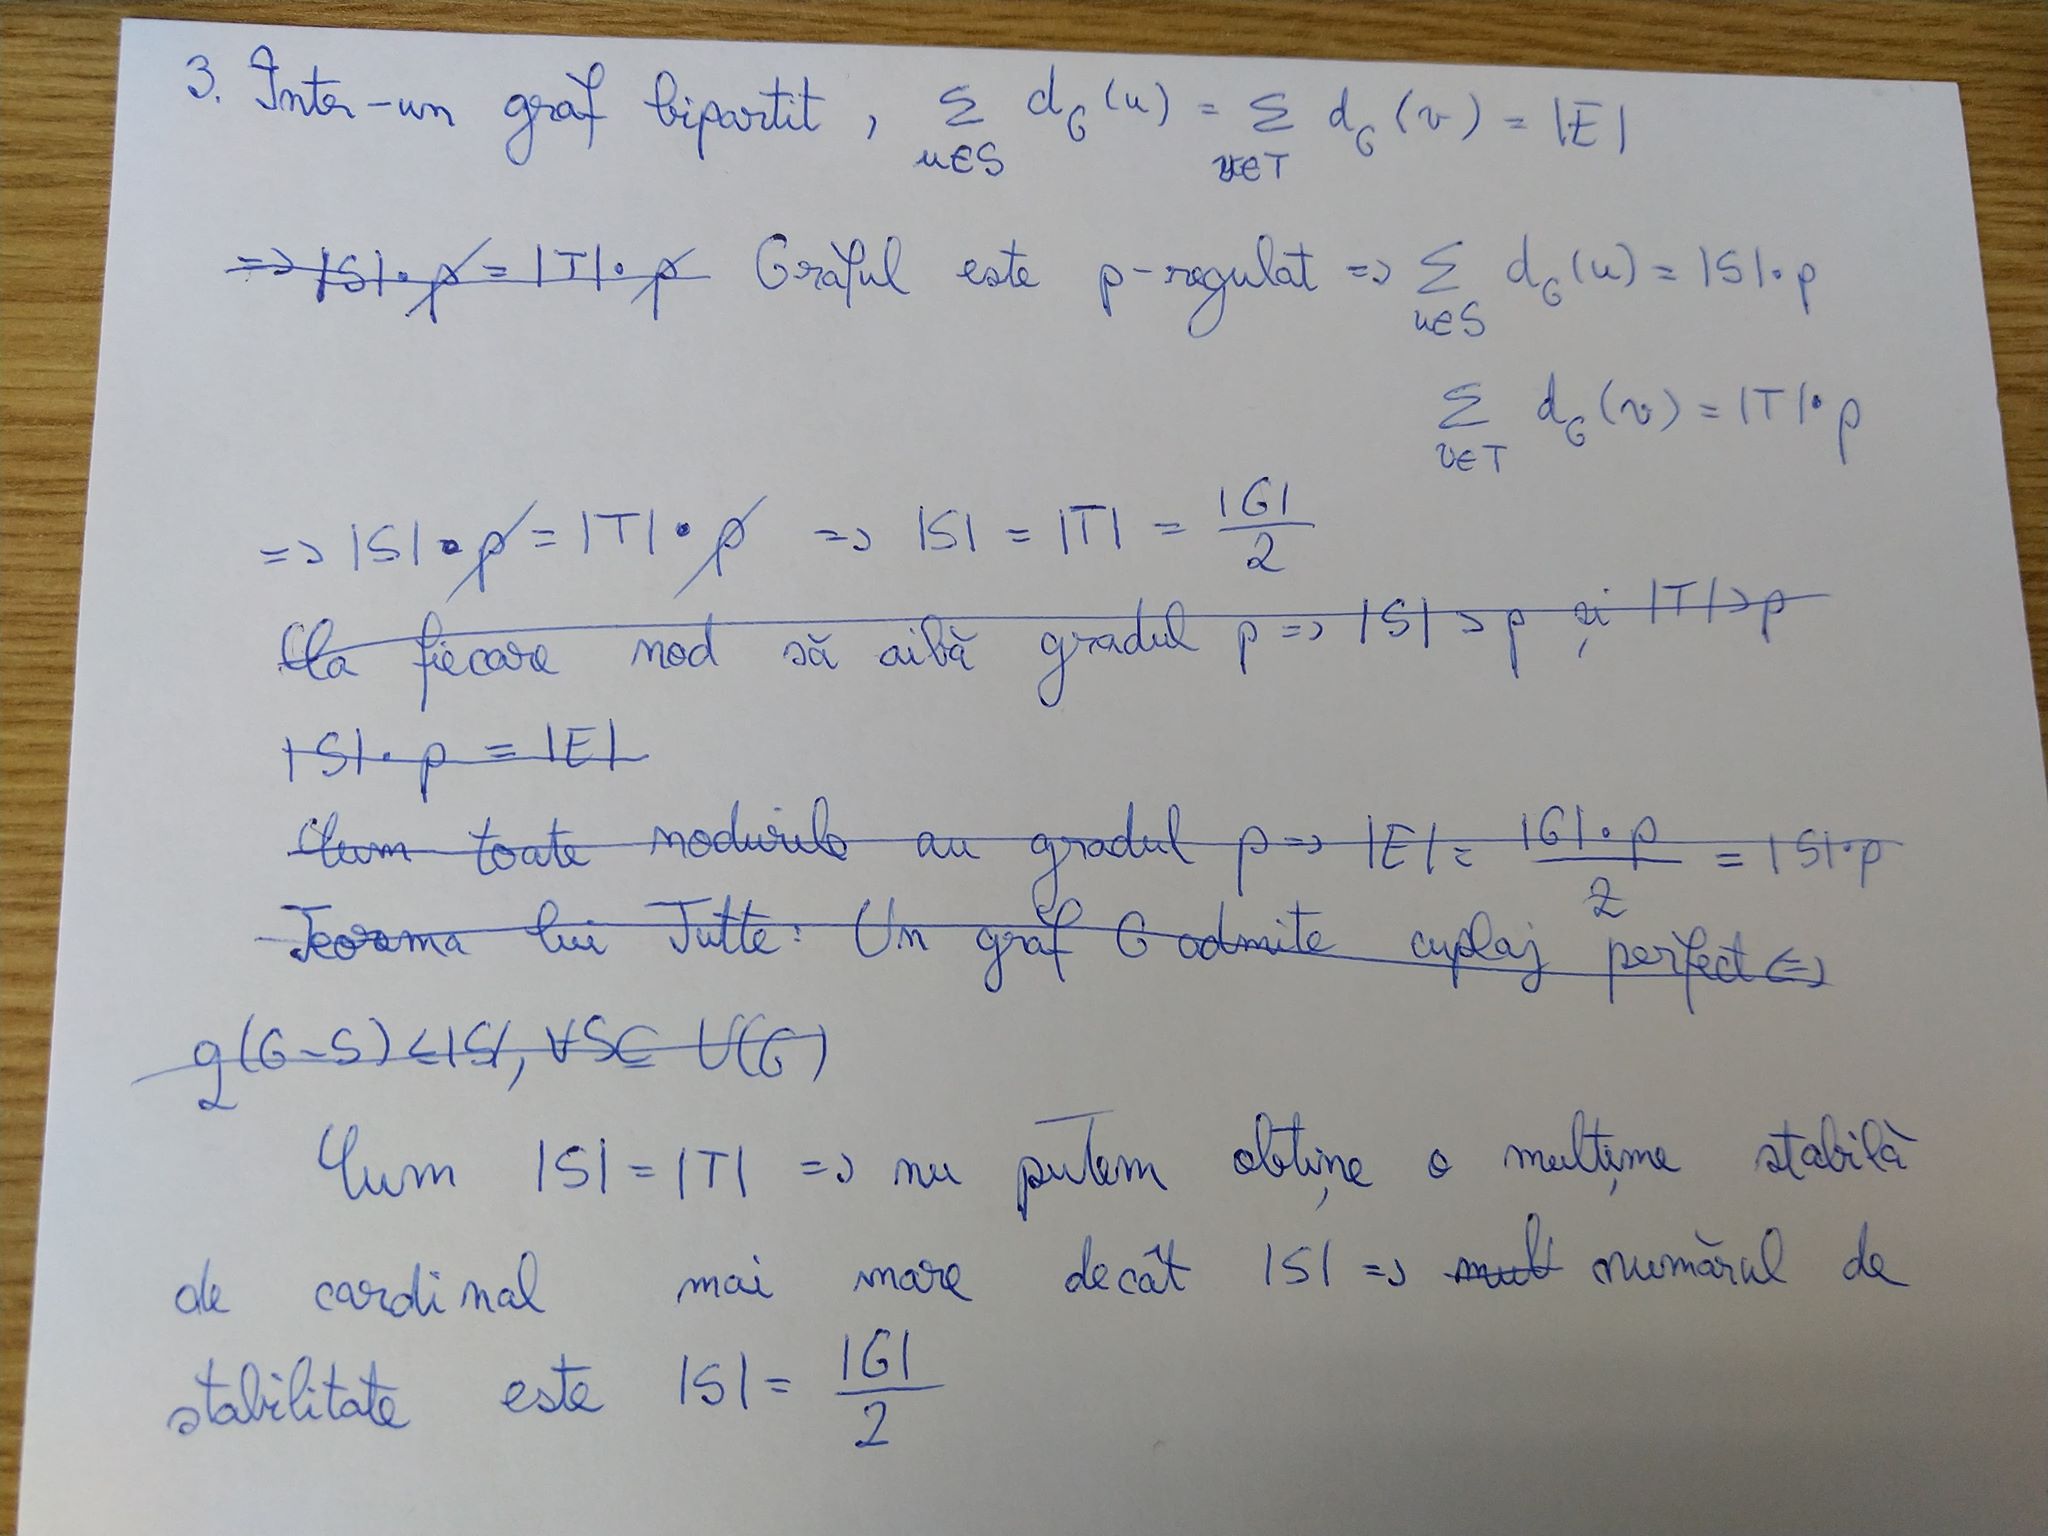 3. Într-un graf bipartit, Σ_{u∈S} d_G(u) = Σ_{v∈T} d_G(v) = |E|
=> |S|·p = |T|·p Graful este p-regulat => Σ_{u∈S} d_G(u) = |S|·p
Σ_{v∈T} d_G(v) = |T|·p
=> |S|·p = |T|·p => |S| = |T| = |G|/2
Ca fiecare nod să aibă gradul p => |S| > p și |T| > p
|S|·p = |E|
Cum toate nodurile au gradul p => |E| = |G|·p/2 = |S|·p
Teorema lui Tutte: Un graf G admite cuplaj perfect <=>
q(G-S) ≤ |S|, ∀S⊆V(G)
Cum |S| = |T| => nu putem obține o mulțime stabilă
de cardinal mai mare decât |S| => mult numărul de
stabilitate este |S| = |G|/2